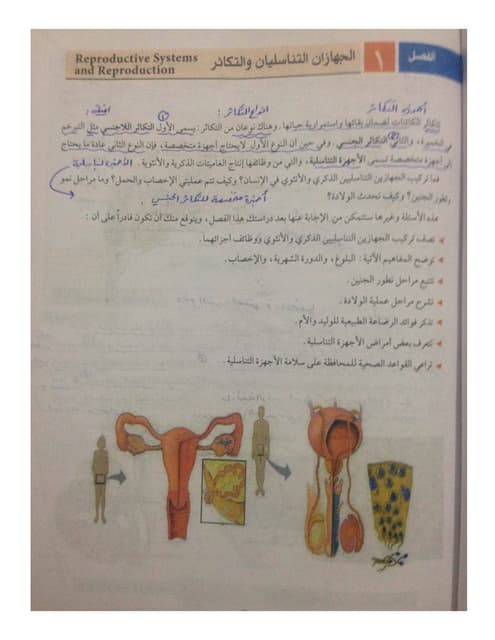 الفصل ١ الجهازان التناسليان والتكاثر
Reproductive Systems
and Reproduction
أهمية التكاثر
أنواع التكاثر :
تتكاثر الكائنات لضمان بقائها واستمرارية حياتها. وهناك نوعان من التكاثر: يسمى الأول التكاثر اللاجنسي مثل التبرعم
في الخميرة، والثاني التكاثر الجنسي. وفي حين أن النوع الأول لا يحتاج أجهزة متخصصة، فإن النوع الثاني عادة ما يحتاج
إلى أجهزة متخصصة تسمى الأجهزة التناسلية، والتي من وظائفها إنتاج الغاميتات الذكرية والأنثوية.
الأجهزة التناسلية
فما تركيب الجهازين التناسليين الذكري والأنثوي في الإنسان؟ وكيف تتم عمليتي الإخصاب والحمل؟ وما مراحل نمو
وتطور الجنين؟ وكيف تحدث الولادة؟
أجهزة متخصصة للتكاثر الجنسي
هذه الأسئلة وغيرها ستتمكن من الإجابة عنها بعد دراستك هذا الفصل، ويتوقع منك أن تكون قادراً على أن :
تصف تركيب الجهازين التناسليين الذكري والأنثوي ووظائف أجزائهما.
توضح المفاهيم الآتية: البلوغ، والدورة الشهرية، والإخصاب.
تتتبع مراحل تطور الجنين.
تشرح مراحل عملية الولادة.
تذكر فوائد الرضاعة الطبيعية للوليد والأم.
تتعرف بعض أمراض الأجهزة التناسلية.
تراعي القواعد الصحية للمحافظة على سلامة الأجهزة التناسلية.